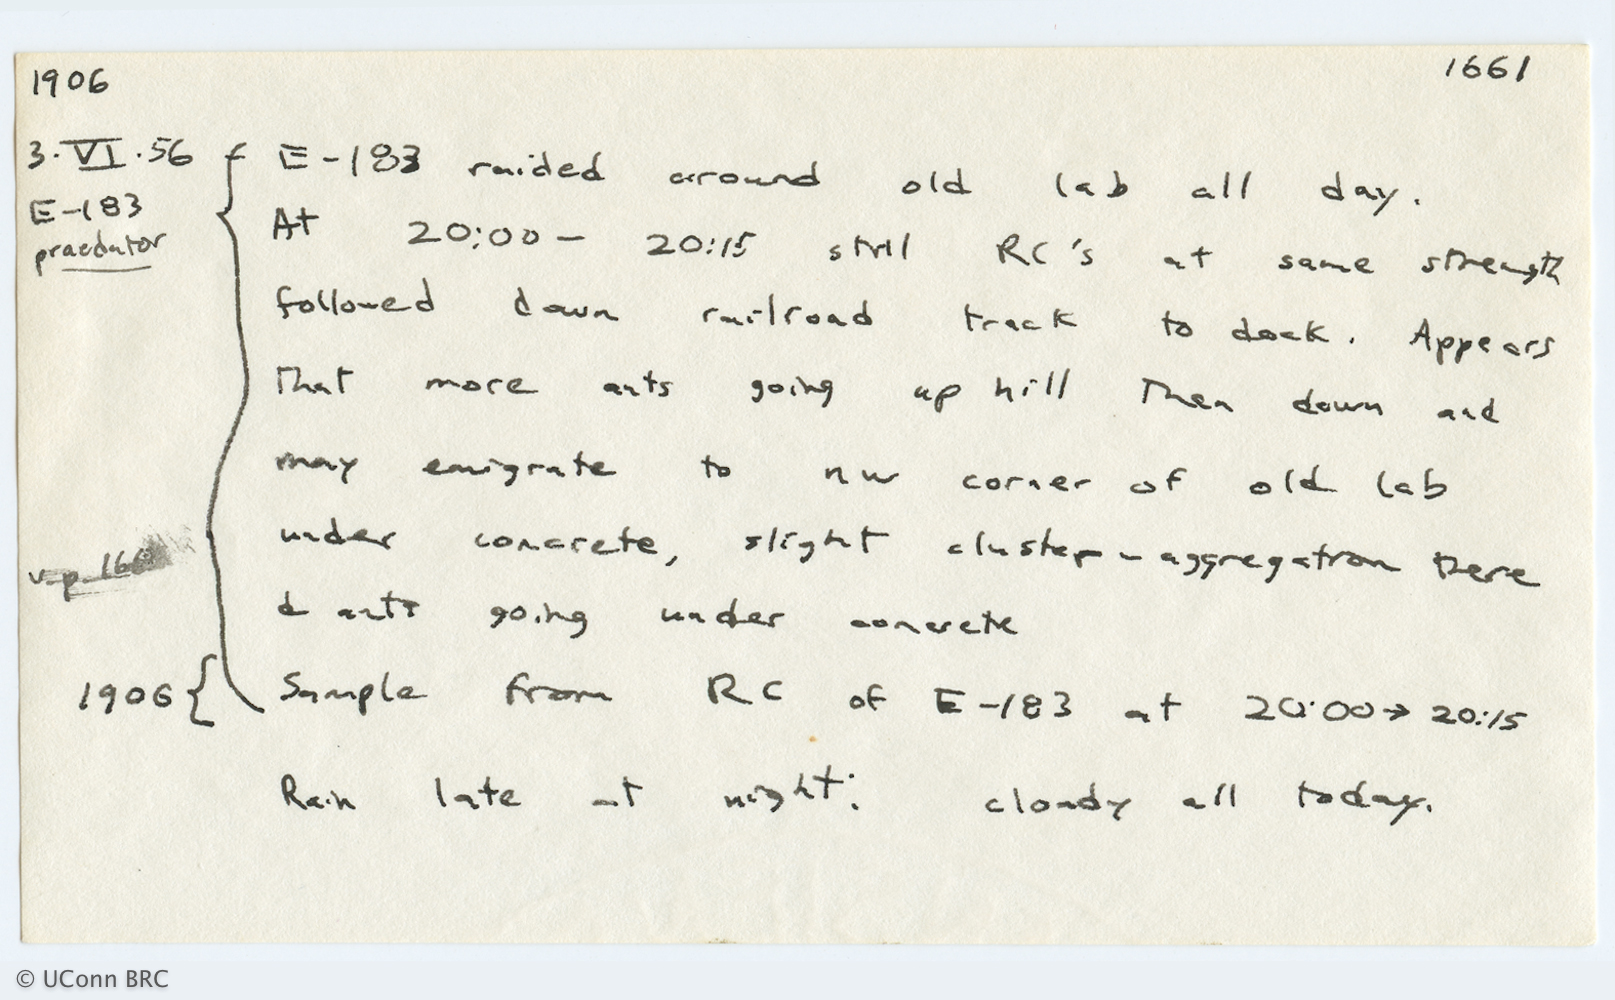 1906
1661
3·VI·56
E-183
praedator
E-183 raided around old lab all day.
At 20:00 - 20:15 still RC's at same strength
followed down railroad track to dock. Appears
that more ants going up hill then down and
may emigrate to nw corner of old lab
under concrete, slight cluster-aggregation there
& ants going under concrete
v.p.
1906 { Sample from RC of E-183 at 20:00→20:15
Rain late at night: cloudy all today.
© UConn BRC